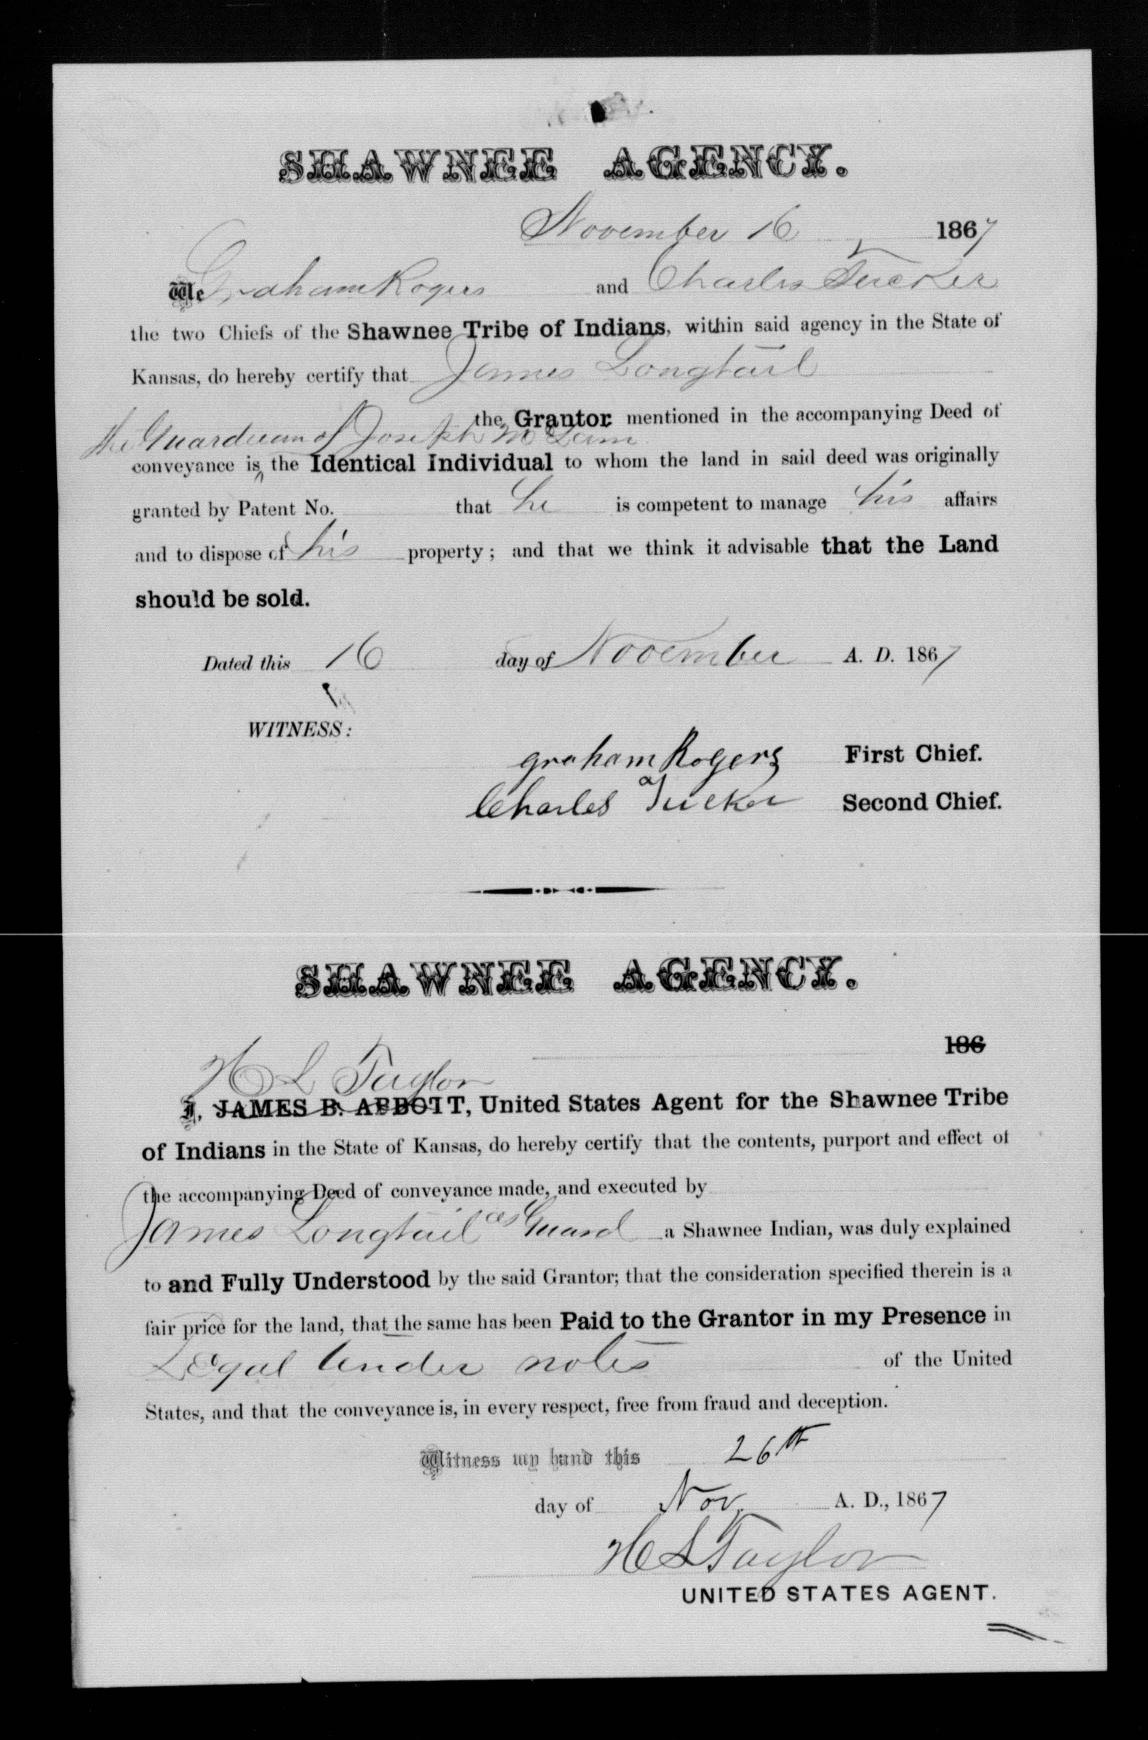 SHAWNEE AGENCY.
November 16 1867
We Graham Rogers and Charles Tucker
the two Chiefs of the Shawnee Tribe of Indians, within said agency in the State of
Kansas, do hereby certify that James Longtail
the Grantor mentioned in the accompanying Deed of
the Guardian of Joseph
conveyance is ^ the Identical Individual to whom the land in said deed was originally
granted by Patent No. that he is competent to manage his affairs
and to dispose of his property; and that we think it advisable that the Land
should be sold.
Dated this 16 day of November A. D. 1867
WITNESS:
graham Rogers First Chief.
Charles Tucker Second Chief.
SHAWNEE AGENCY.
186
H L Taylor
I, JAMES B. ABBOTT, United States Agent for the Shawnee Tribe
of Indians in the State of Kansas, do hereby certify that the contents, purport and effect of
the accompanying Deed of conveyance made, and executed by
James Longtail as Guard a Shawnee Indian, was duly explained
to and Fully Understood by the said Grantor; that the consideration specified therein is a
fair price for the land, that the same has been Paid to the Grantor in my Presence in
Legal tender notes of the United
States, and that the conveyance is, in every respect, free from fraud and deception.
Witness my hand this 26th
day of Nov. A. D., 1867
H L Taylor
UNITED STATES AGENT.